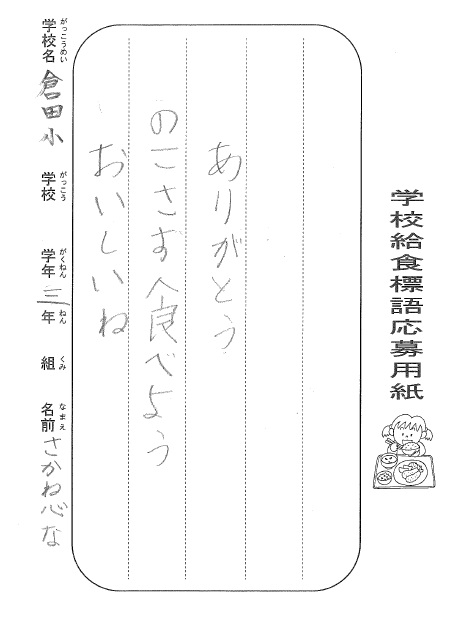 学校給食標語応募用紙
ありがとう
のこさず食べよう
おいしいね
学校名 倉田小 学校 学年 三年 組 名前 さかね心な
がっこうめい がっこう がくねん ねん くみ なまえ